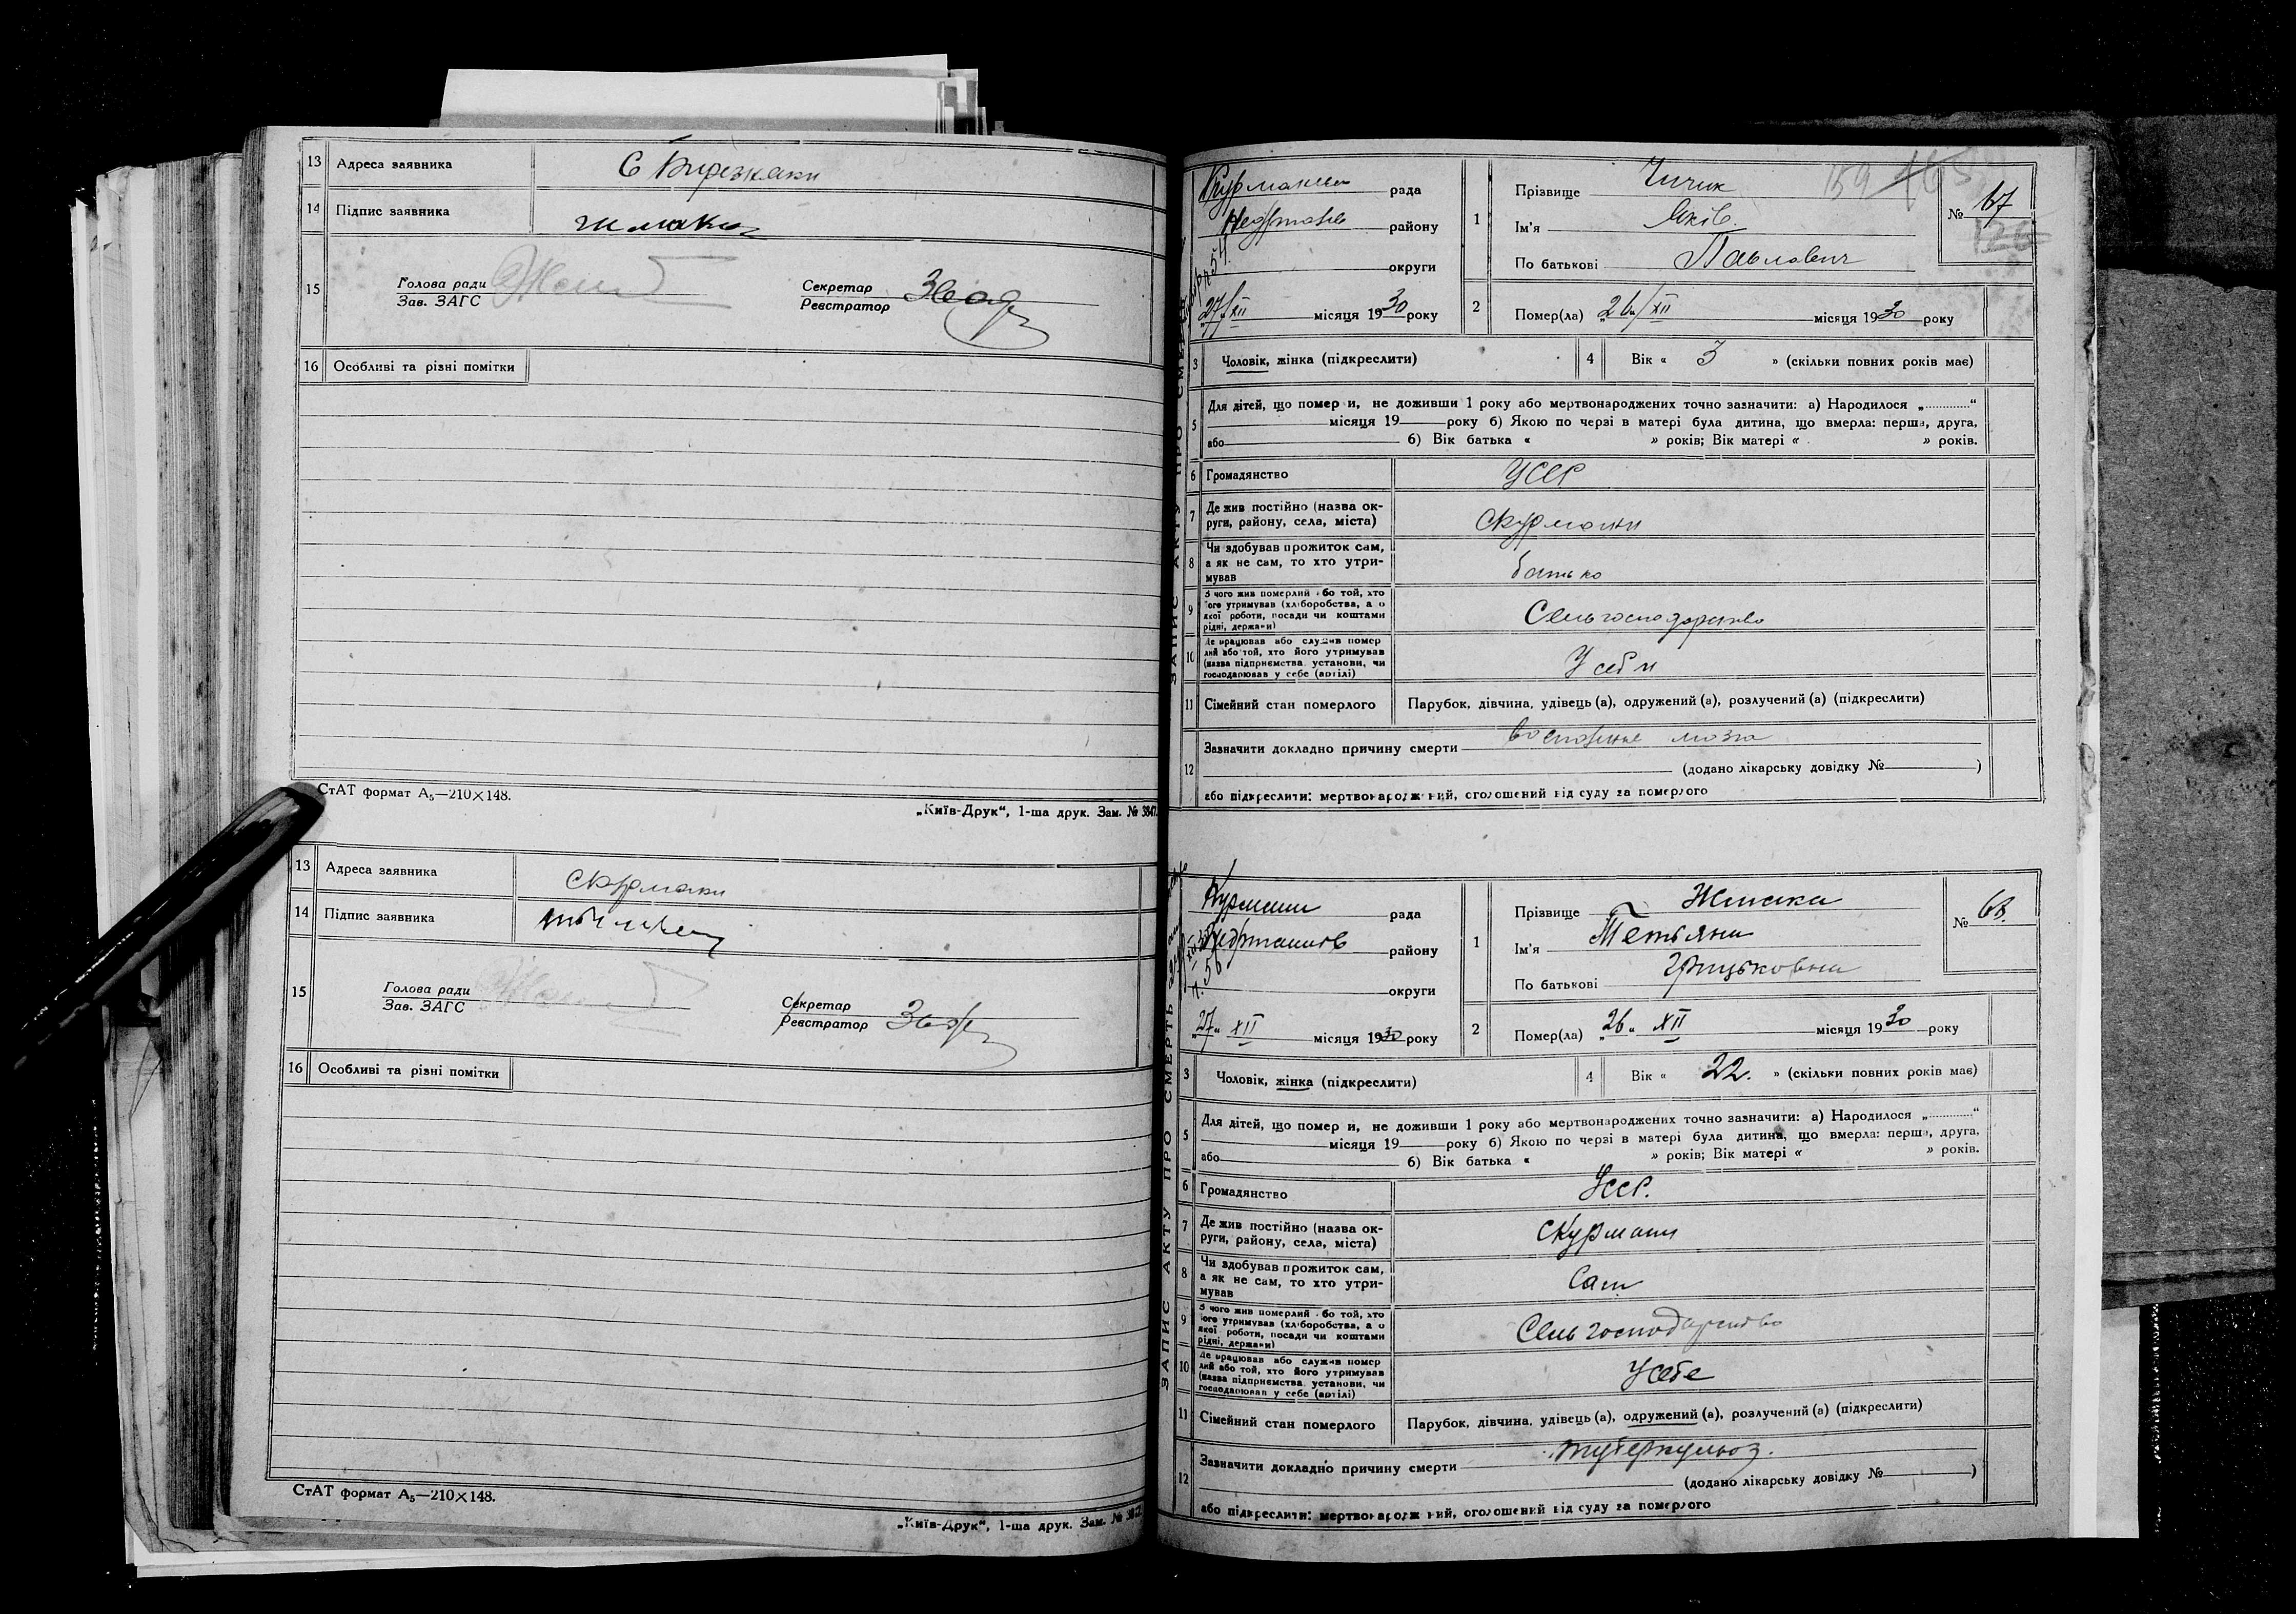 13 Адреса заявника
14 Підпис заявника
15 Голова ради Секретар
Зав. ЗАГС Реєстратор
16 Особливі та різні помітки
СтАТ формат А₅—210×148.
„Київ-Друк“, 1-ша друк. Зам. № 3847.
13 Адреса заявника с Курмани
14 Підпис заявника
15 Голова ради Секретар
Зав. ЗАГС Реєстратор
16 Особливі та різні помітки
СтАТ формат А₅—210×148.
„Київ-Друк“, 1-ша друк. Зам. №
ЗАПИС АКТУ ПРО СМЕРТЬ
рада
району
округи
27/XII місяця 1930 року
1 Прізвище Чичик
Ім'я Яків
По батькові Павлович
159
№ 67
2 Помер(ла) „26“/XII місяця 1930 року
3 Чоловік, жінка (підкреслити)
4 Вік « 3 » (скільки повних років має)
5 Для дітей, що помер и, не доживши 1 року або мертвонароджених точно зазначити: а) Народилося „ “
місяця 19 року б) Якою по черзі в матері була дитина, що вмерла: перша, друга,
або б) Вік батька « » років; Вік матері « » років.
6 Громадянство УССР
7 Де жив постійно (назва ок-
руги, району, села, міста) с Курмани
8 Чи здобував прожиток сам,
а як не сам, то хто утри-
мував батько
9 З чого жив померлий або той, хто
його утримував (хліборобства, а о
якої роботи, посади чи коштами
рідні, держави) Сельгосподарство
10 Де працював або служив помер
лий або той, хто його утримував
(назва підприємства, установи, чи
господарював у себе (артілі) У себи
11 Сімейний стан померлого Парубок, дівчина, удівець (а), одружений (а), розлучений (а) (підкреслити)
12 Зазначити докладно причину смерти воспаление мозга
(додано лікарську довідку № )
або підкреслити: мертвонароджений, оголошений від суду за померлого
ЗАПИС АКТУ ПРО СМЕРТЬ
Курмани рада
району
округи
„27“ XII місяця 1930 року
1 Прізвище
Ім'я Тетьяна
По батькові Грицьковна
№ 68.
2 Помер(ла) „26“ XII місяця 1930 року
3 Чоловік, жінка (підкреслити)
4 Вік « 22. » (скільки повних років має)
5 Для дітей, що помер и, не доживши 1 року або мертвонароджених точно зазначити: а) Народилося „ “
місяця 19 року б) Якою по черзі в матері була дитина, що вмерла: перша, друга,
або б) Вік батька « » років; Вік матері « » років.
6 Громадянство УССР.
7 Де жив постійно (назва ок-
руги, району, села, міста) с Курмани
8 Чи здобував прожиток сам,
а як не сам, то хто утри-
мував Сам
9 З чого жив померлий або той, хто
його утримував (хліборобства, а о
якої роботи, посади чи коштами
рідні, держави) Сельгосподарство
10 Де працював або служив помер
лий або той, хто його утримував
(назва підприємства, установи, чи
господарював у себе (артілі) У себе
11 Сімейний стан померлого Парубок, дівчина, удівець (а), одружений (а), розлучений (а) (підкреслити)
12 Зазначити докладно причину смерти туберкульоз.
(додано лікарську довідку № )
або підкреслити: мертвонароджений, оголошений від суду за померлого